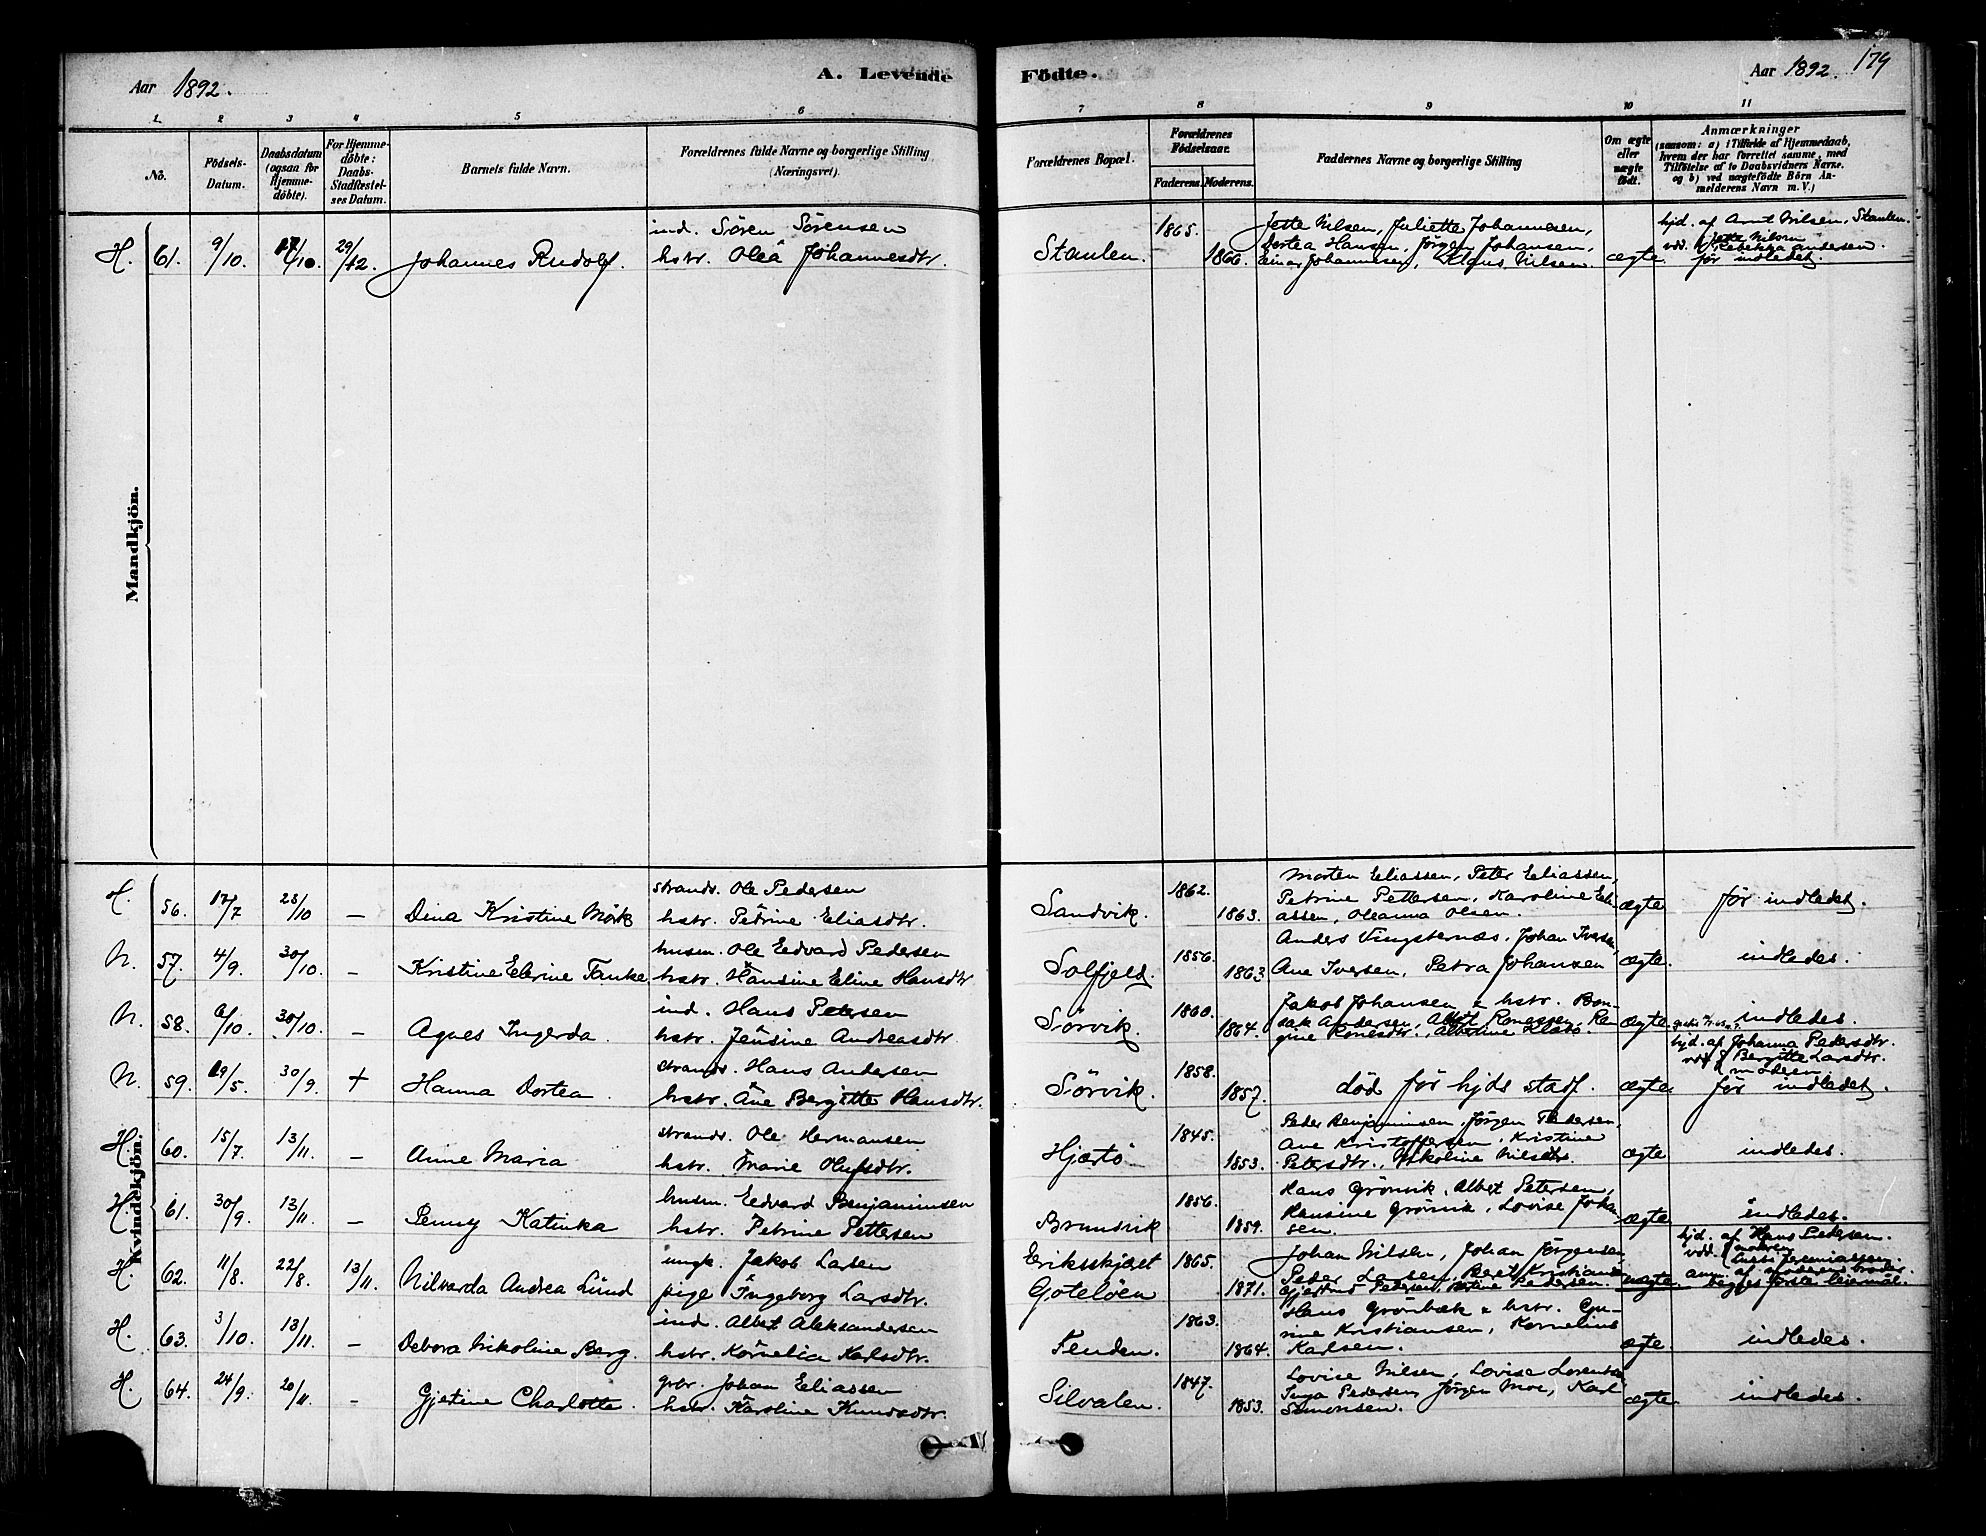 Aar 1892.
A. Levende Födte.
Aar 1892. 179
1. 2 3 4 5 6 7 8 9 10 11
No.
Födsels-Datum.
Daabsdatum (ogsaa for Hjemme-döbte).
For Hjemme-döbte: Daabs-Stadfæstel-ses Datum.
Barnets fulde Navn.
Forældrenes fulde Navne og borgerlige Stilling (Næringsvei).
Forældrenes Bopæl.
Forældrenes Födselsaar.
Faderens. Moderens.
Faddernes Navne og borgerlige Stilling
Om ægte eller uægte födt.
Anmærkninger
(saasom: a) i Tilfælde af Hjemmedaab,
hvem der har forrettet samme, med
Tilföielse af to Daabsvidners Navne.
og b) ved uægtefödte Börn An-
melderens Navn m. V.)
Mandkjön.
ind. Sören Sörensen 1865. Jette Nilsen, Juliette Johannesen, hjd. af Arnt Nilsen, Staulen.
Dortea Hansen, Jörgen Johansen, vdd. Jette Nilsen Rebekka Andersen.
H. 61. 9/10. /10. 29/12. Johannes Rudolf. hstr. Olea Johannesdtr. Staulen. 1866. Einar Johannesen, Klaus Nilsen. ægte för indledet.
Kvindekjön.
strandr. Ole Pedersen 1862. Morten Eliassen, Peter Eliassen,
Petrine Pettersen, Karoline Eli-
H. 56. 17/7 23/10 — Dina Kristine Mörk hstr. Petrine Eliasdtr. Sandvik. 1863. assen, Oleanna Olsen. ægte för indledet.
husm. Ole Edvard Pedersen 1856. Anders Vingsternæs, Johan Iversen
N. 57. 4/9. 30/10. — Kristine Elerine Fanke hstr. Hansine Eline Hansdtr Solfjeld. 1863 Ane Iversen, Petra Johansen ægte. indledes.
ind. Hans Petersen 1860. Jakob Johansen & hstr. Ben-
N. 58. 6/10. 30/10. — Agnes Ingerda hstr. Jensine Andreasdtr. Sörvik. 1864. ægte indledes.
hjd. af Johanna Pedersdtr.
vdd. Bergitte Larsdtr.
moderen
strandr. Hans Andersen 1858.
N. 59. 29/5. 30/9. + Hanna Dortea. hstr. Ane Bergitte Hansdtr. Sörvik. 1857. död för hjds stadf. ægte. för indledet.
strandr. Ole Hermansen 1845. Peder Benjaminsen, Jörgen Pedersen,
Ane Kristoffersen, Kristine
H. 60. 15/7. 13/11. — Anne Maria hstr. Marie Olufsdtr. Hjartö 1853. Petersdtr., Nikoline Nilsdtr. ægte indledes.
husm. Edvard Benjaminsen 1856. Hans Grönvik, Albert Petersen,
Hansine Grönvik, Lovise Johan
H. 61. 30/9. 13/11. — Penny Katinka hstr. Petrine Pettersen Brundvik 1859. sen. ægte indledes.
hjd. af Hans Pedersen.
ungk. Jakob Larsen Eriksskjæt 1865. Johan Nilsen, Johan Jörgensen
Peder Larsen, Beret Kristiansen
H. 62. 11/8. 22/8. 13/11. Nilvarda Andrea Lund pige Ingeborg Larsdtr. Goteloen 1871. Gjertrud Pedersen, Pedersen. uægte begges förste leiermål.
ind. Albert Aleksandersen 1863. Hans Grönbæk & hstr. Gu-
rine Kristiansen, Kornelius
H. 63. 3/10. 13/11. — Debora Nikoline Berg. hstr. Kornelia Karlsdtr. Fenden. 1864. Karlsen. ægte indledes.
gbr. Johan Eliassen 1847. Lovise Nilsen, Lovise Lorentsen
Inga Pedersen, Jörgen Moe, Karl
H. 64. 24/9. 20/11. — Gjertine Charlotte. hstr. Karoline Knudsdtr. Silvalen. 1853. Simonsen. ægte indledes.